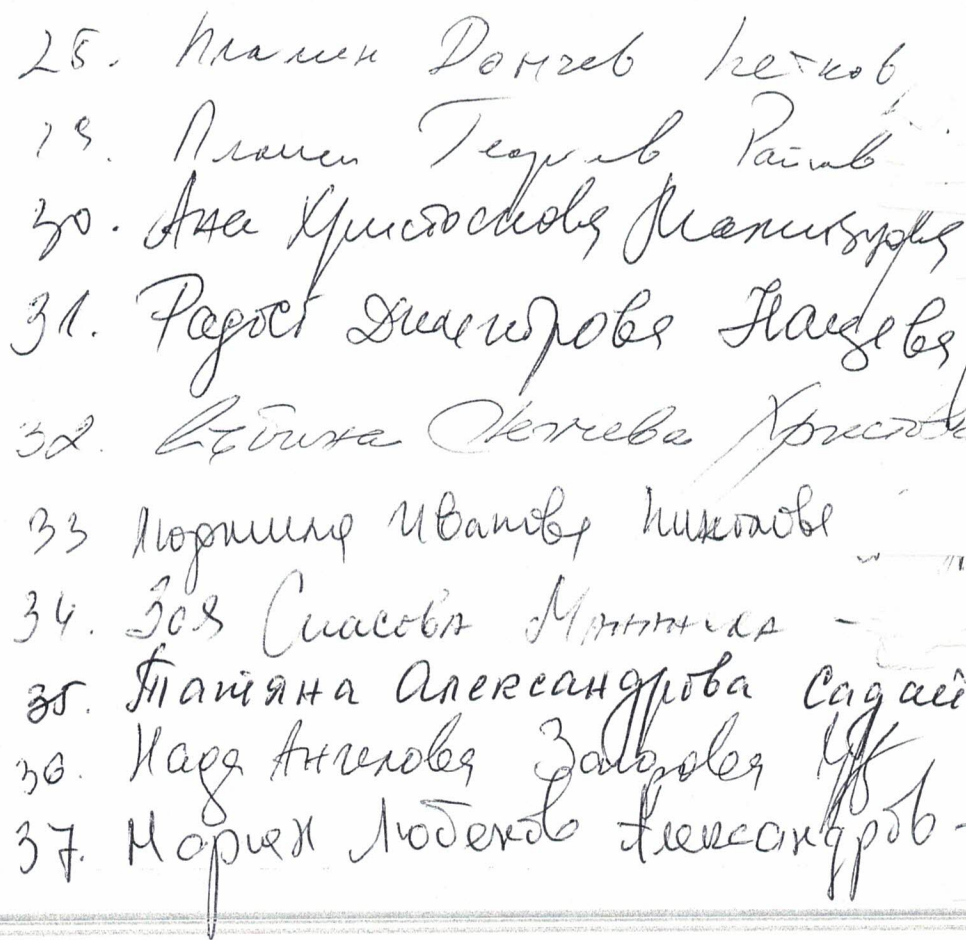 28. Пламен Дончев Петков
29. Пламен Георгиев Райков
30. Ана Христоскова
31. Радост Димитрова Нацева
32. Христова
33 Людмила Иванова Николова
34. Зоя Спасова
35. Татяна Александрова Садай
36. Надя Ангелова
37. Мариян Любенов Александров -